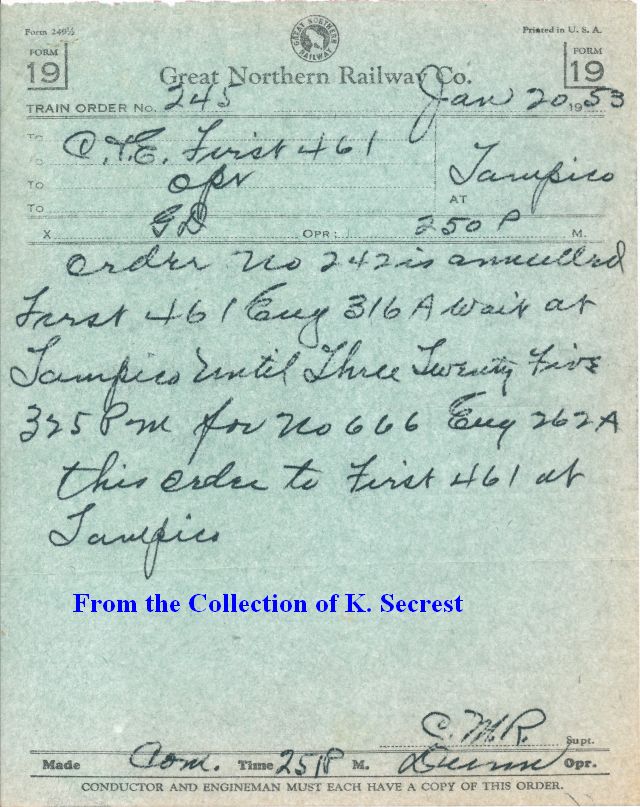 Form 249½
Printed in U. S. A.
GREAT NORTHERN RAILWAY
FORM 19
FORM 19
Great Northern Railway Co.
TRAIN ORDER No. 245 Jan 20 1953
To C.&E. First 461
To
To Opr Tampico
AT
To
X GD OPR: 250 P M.
Order No 242 is annulled
First 461 Eng 316 A wait at
Tampico until Three Twenty Five
325 P m for No 666 Eng 262 A
this order to First 461 at
Tampico
From the Collection of K. Secrest
C. M. R. Supt.
Made Com. Time 251P M. Dunn Opr.
CONDUCTOR AND ENGINEMAN MUST EACH HAVE A COPY OF THIS ORDER.